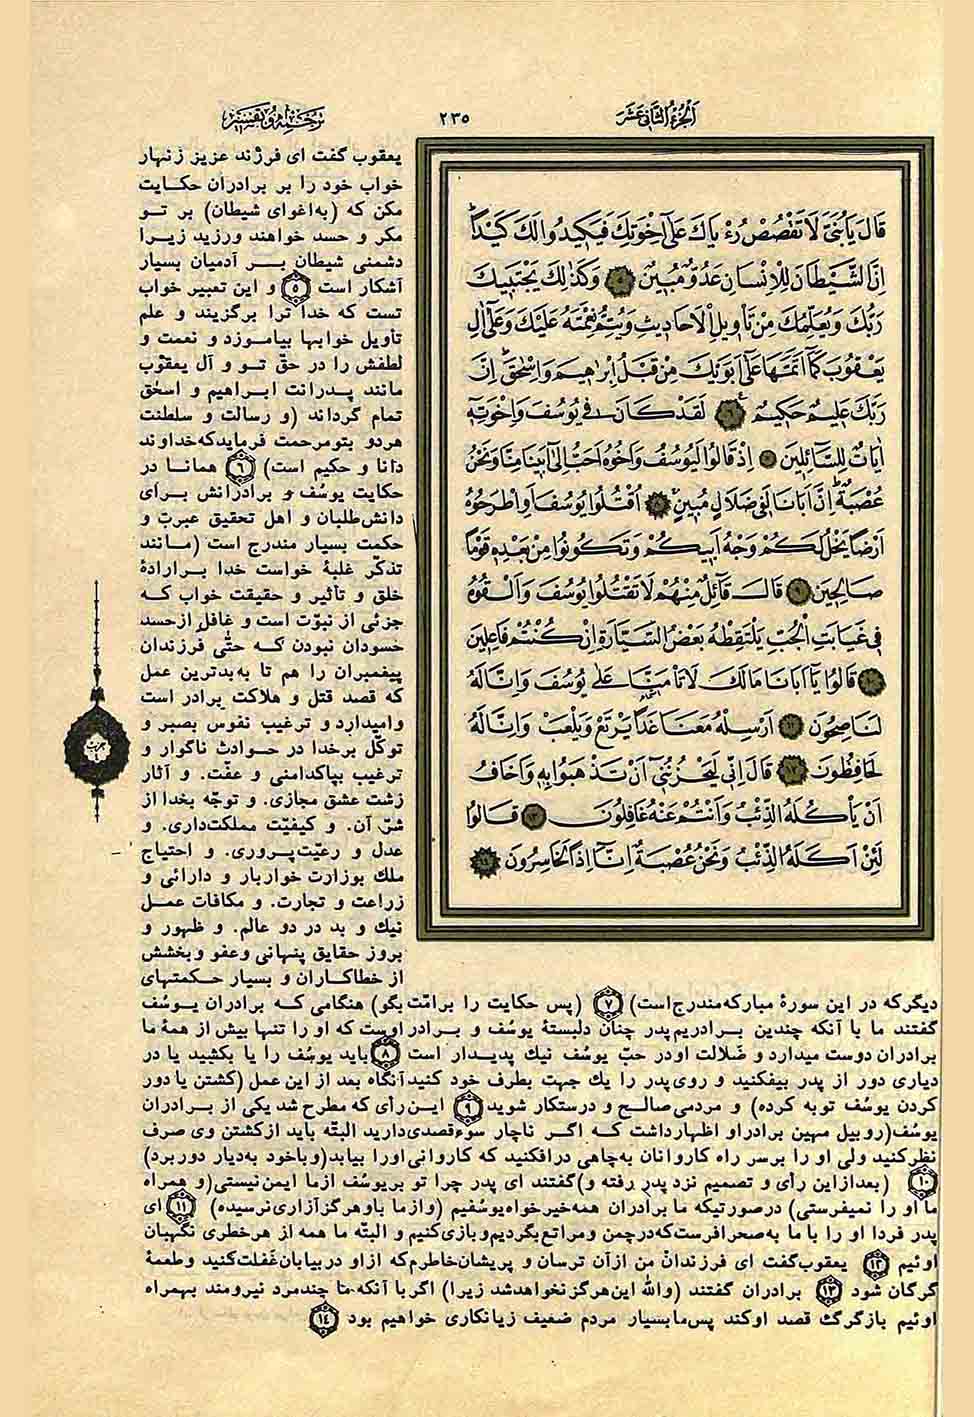 الجزء الثانی عشر
۲۳۵
ترجمه و تفسیر
قَالَ يَا بُنَيَّ لَا تَقْصُصْ رُءْيَاكَ عَلَىٰ اِخْوَتِكَ فَيَكِيدُوا لَكَ كَيْدًا
اِنَّ الشَّيْطَانَ لِلْاِنْسَانِ عَدُوٌّ مُبِينٌ ۵ وَكَذٰلِكَ يَجْتَبِيكَ
رَبُّكَ وَيُعَلِّمُكَ مِنْ تَأْوِيلِ الْاَحَادِيثِ وَيُتِمُّ نِعْمَتَهُ عَلَيْكَ وَعَلَىٰ اٰلِ
يَعْقُوبَ كَمَا اَتَمَّهَا عَلَىٰ اَبَوَيْكَ مِنْ قَبْلُ اِبْرٰهِيمَ وَاِسْحٰقَ اِنَّ
رَبَّكَ عَلِيمٌ حَكِيمٌ ۶ لَقَدْ كَانَ فِي يُوسُفَ وَاِخْوَتِهِ
اٰيَاتٌ لِلسَّائِلِينَ ۷ اِذْ قَالُوا لَيُوسُفُ وَاَخُوهُ اَحَبُّ اِلَىٰ اَبِينَا مِنَّا وَنَحْنُ
عُصْبَةٌ اِنَّ اَبَانَا لَفِي ضَلَالٍ مُبِينٍ ۸ اُقْتُلُوا يُوسُفَ اَوِ اطْرَحُوهُ
اَرْضًا يَخْلُ لَكُمْ وَجْهُ اَبِيكُمْ وَتَكُونُوا مِنْ بَعْدِهِ قَوْمًا
صَالِحِينَ ۹ قَالَ قَائِلٌ مِنْهُمْ لَا تَقْتُلُوا يُوسُفَ وَاَلْقُوهُ
فِي غَيَابَتِ الْجُبِّ يَلْتَقِطْهُ بَعْضُ السَّيَّارَةِ اِنْ كُنْتُمْ فَاعِلِينَ
۱۰ قَالُوا يَا اَبَانَا مَالَكَ لَا تَأْمَنَّا عَلَىٰ يُوسُفَ وَاِنَّا لَهُ
لَنَاصِحُونَ ۱۱ اَرْسِلْهُ مَعَنَا غَدًا يَرْتَعْ وَيَلْعَبْ وَاِنَّا لَهُ
لَحَافِظُونَ ۱۲ قَالَ اِنِّي لَيَحْزُنُنِي اَنْ تَذْهَبُوا بِهِ وَاَخَافُ
اَنْ يَأْكُلَهُ الذِّئْبُ وَاَنْتُمْ عَنْهُ غَافِلُونَ ۱۳ قَالُوا
لَئِنْ اَكَلَهُ الذِّئْبُ وَنَحْنُ عُصْبَةٌ اِنَّا اِذًا لَخَاسِرُونَ ۱۴
یعقوب گفت ای فرزند عزیز زنهار
خواب خود را بر برادران حکایت
مکن که (به اغوای شیطان) بر تو
مکر و حسد خواهند ورزید زیرا
دشمنی شیطان بر آدمیان بسیار
آشکار است ۵ و این تعبیر خواب
تست که خدا ترا برگزیند و علم
تأویل خوابها بیاموزد و نعمت و
لطفش را در حقّ تو و آل یعقوب
مانند پدرانت ابراهیم و اسحٰق
تمام گرداند (و رسالت و سلطنت
هردو بتو مرحمت فرماید که خداوند
دانا و حکیم است) ۶ همانا در
حکایت یوسُف و برادرانش برای
دانش‌طلبان و اهل تحقیق عبرت و
حکمت بسیار مندرج است (مانند
تذکّر غلبهٔ خواست خدا بر ارادهٔ
خلق و تأثیر و حقیقت خواب که
جزئی از نبوّت است و غافل از حسد
حسودان نبودن که حتّی فرزندان
پیغمبران را هم تا به بدترین عمل
که قصد قتل و هلاکت برادر است
وامیدارد و ترغیب نفوس بصبر و
توکّل بر خدا در حوادث ناگوار و
ترغیب بپاکدامنی و عفّت. و آثار
زشت عشق مجازی. و توجّه بخدا از
شرّ آن. و کیفیّت مملکت‌داری. و
عدل و رعیّت‌پروری. و احتیاج
ملك بوزارت خواربار و دارائی و
زراعت و تجارت. و مکافات عمل
نیك و بد در دو عالم. و ظهور و
بروز حقایق پنهانی و عفو و بخشش
از خطاکاران و بسیار حکمتهای
دیگر که در این سورهٔ مبارکه مندرج است) ۷ (پس حکایت را بر امّت بگو) هنگامی که برادران یوسُف
گفتند ما با آنکه چندین برادریم پدر چنان دلبستهٔ یوسُف و برادر اوست که او را تنها بیش از همهٔ ما
برادران دوست میدارد و ضلالت او در حبّ یوسُف نیك پدیدار است ۸ باید یوسُف را یا بکشید یا در
دیاری دور از پدر بیفکنید و روی پدر را یك جهت بطرف خود کنید آنگاه بعد از این عمل (کشتن یا دور
کردن یوسُف توبه کرده) و مردمی صالح و درستکار شوید ۹ این رأی که مطرح شد یکی از برادران
یوسُف (روبیل مهین برادر او اظهار داشت که اگر ناچار سوء قصدی دارید البتّه باید از کشتن وی صرف
نظر کنید ولی او را بر سر راه کاروانان به چاهی درافکنید که کاروانی او را بیابد (و با خود به دیار دور برد)
۱۰ (بعد از این رأی و تصمیم نزد پدر رفته و) گفتند ای پدر چرا تو بر یوسُف از ما ایمن نیستی (و همراه
ما او را نمیفرستی) در صورتیکه ما برادران همه خیرخواه یوسُفیم (و از ما باو هرگز آزاری نرسیده) ۱۱ ای
پدر فردا او را با ما به صحرا فرست که در چمن و مراتع بگردیم و بازی کنیم و البتّه ما همه از هر خطری نگهبان
اوئیم ۱۲ یعقوب گفت ای فرزندان من از آن ترسان و پریشان خاطرم که از او در بیابان غفلت کنید و طعمهٔ
گرگان شود ۱۳ برادران گفتند (والله این هرگز نخواهد شد زیرا) اگر با آنکه ما چند مرد نیرومند بهمراه
اوئیم باز گرگ قصد او کند پس ما بسیار مردم ضعیف زیانکاری خواهیم بود ۱۴